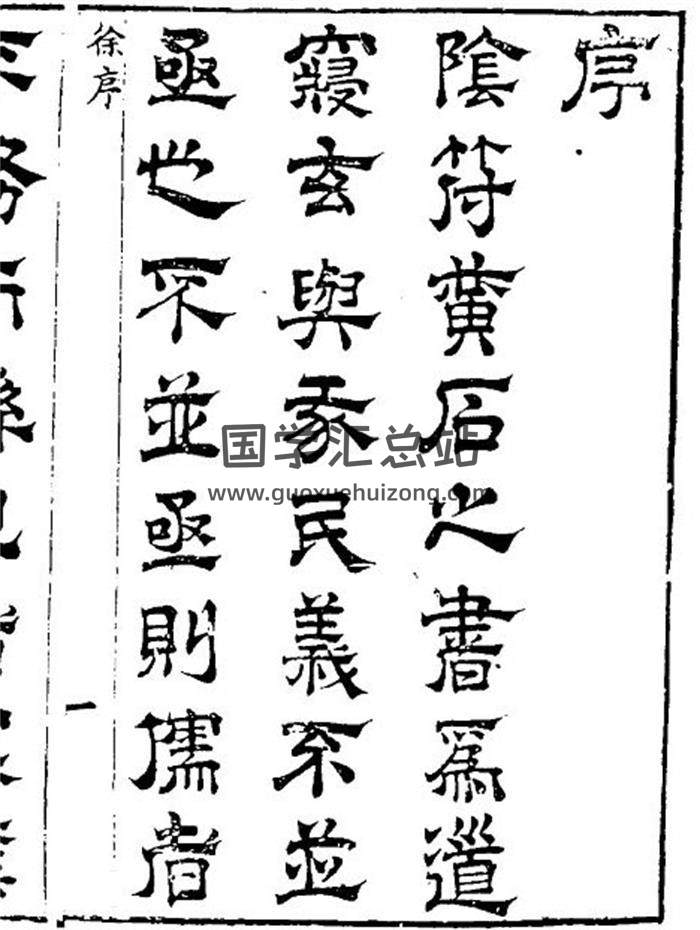 序
陰符黃石之書爲道
寢玄與民義不並
亟也不並亟則儒者
徐序
一
国学汇总站
www.guoxuehuizong.com